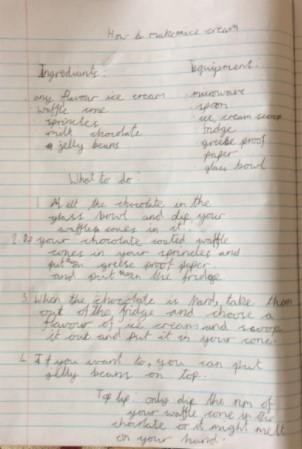 How to make ice cream
Ingrediants: Equipment:
any flavour ice cream microwave
waffle cone spoon
sprincles ice cream scoop
milk chocolate fridge
jelly beans greese proof
paper
glass bowl
What to do:
1. Melt all the chocolate in the
glass bowl and dip your
waffle cones in it.
2. Do your chocolate coated waffle
cones in your sprincles and
put on grese proof paper
and put in the fridge
3. When the chocolate is hard, take them
out of the fridge and choose a
flavour of ice cream and scoop
it out and put it in your cone.
4. If you want to, you can put
jelly beans on top.
Top tip: only dip the rim of
your waffle cone in the
chocolate or it might melt
on your hand.